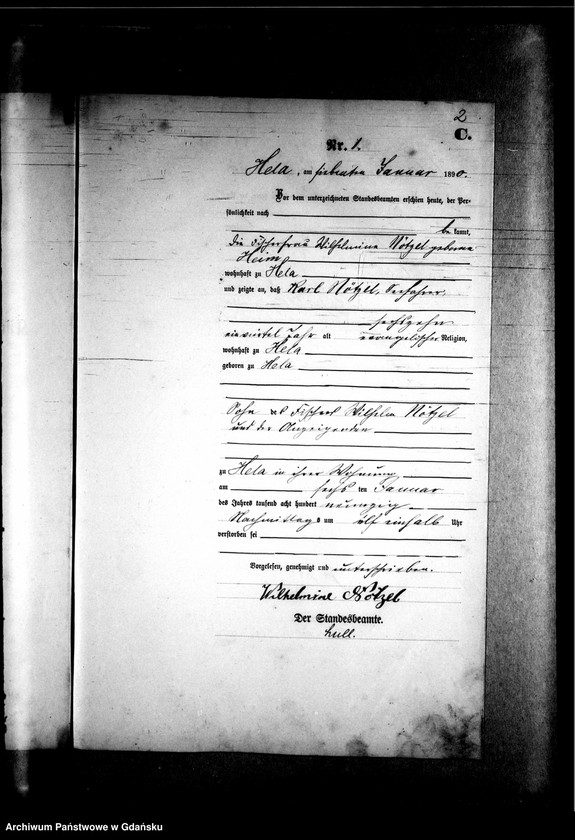 2
C.
Nr. 1.
Hela, am siebenten Januar 1890.
Vor dem unterzeichneten Standesbeamten erschien heute, der Per-
sönlichkeit nach
be kannt,
die Fischerfrau Wilhelmine Nötzel geborene
Heim
wohnhaft zu Hela
und zeigte an, daß Karl Nötzel, Seefahrer,
sechszehn
einviertel Jahr alt evangelischer Religion,
wohnhaft zu Hela
geboren zu Hela
Sohn des Fischers Wilhelm Nötzel
und der Anzeigenden
zu Hela in ihrer Wohnung
am sechs ten Januar
des Jahres tausend acht hundert neunzig
Nachmittags um elf einhalb Uhr
verstorben sei
Vorgelesen, genehmigt und unterschrieben.
Wilhelmine Nötzel
Der Standesbeamte.
Archiwum Państwowe w Gdańsku